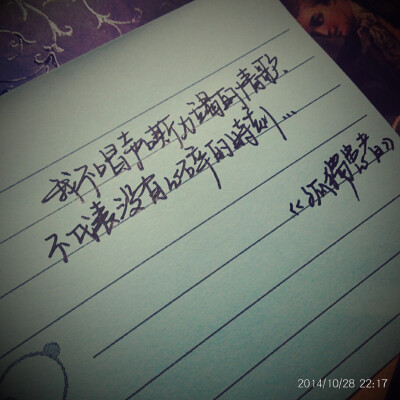 我不唱声嘶力竭的情歌.
不代表没有心碎的时刻...
《孤独患者》
2014/10/28 22:17